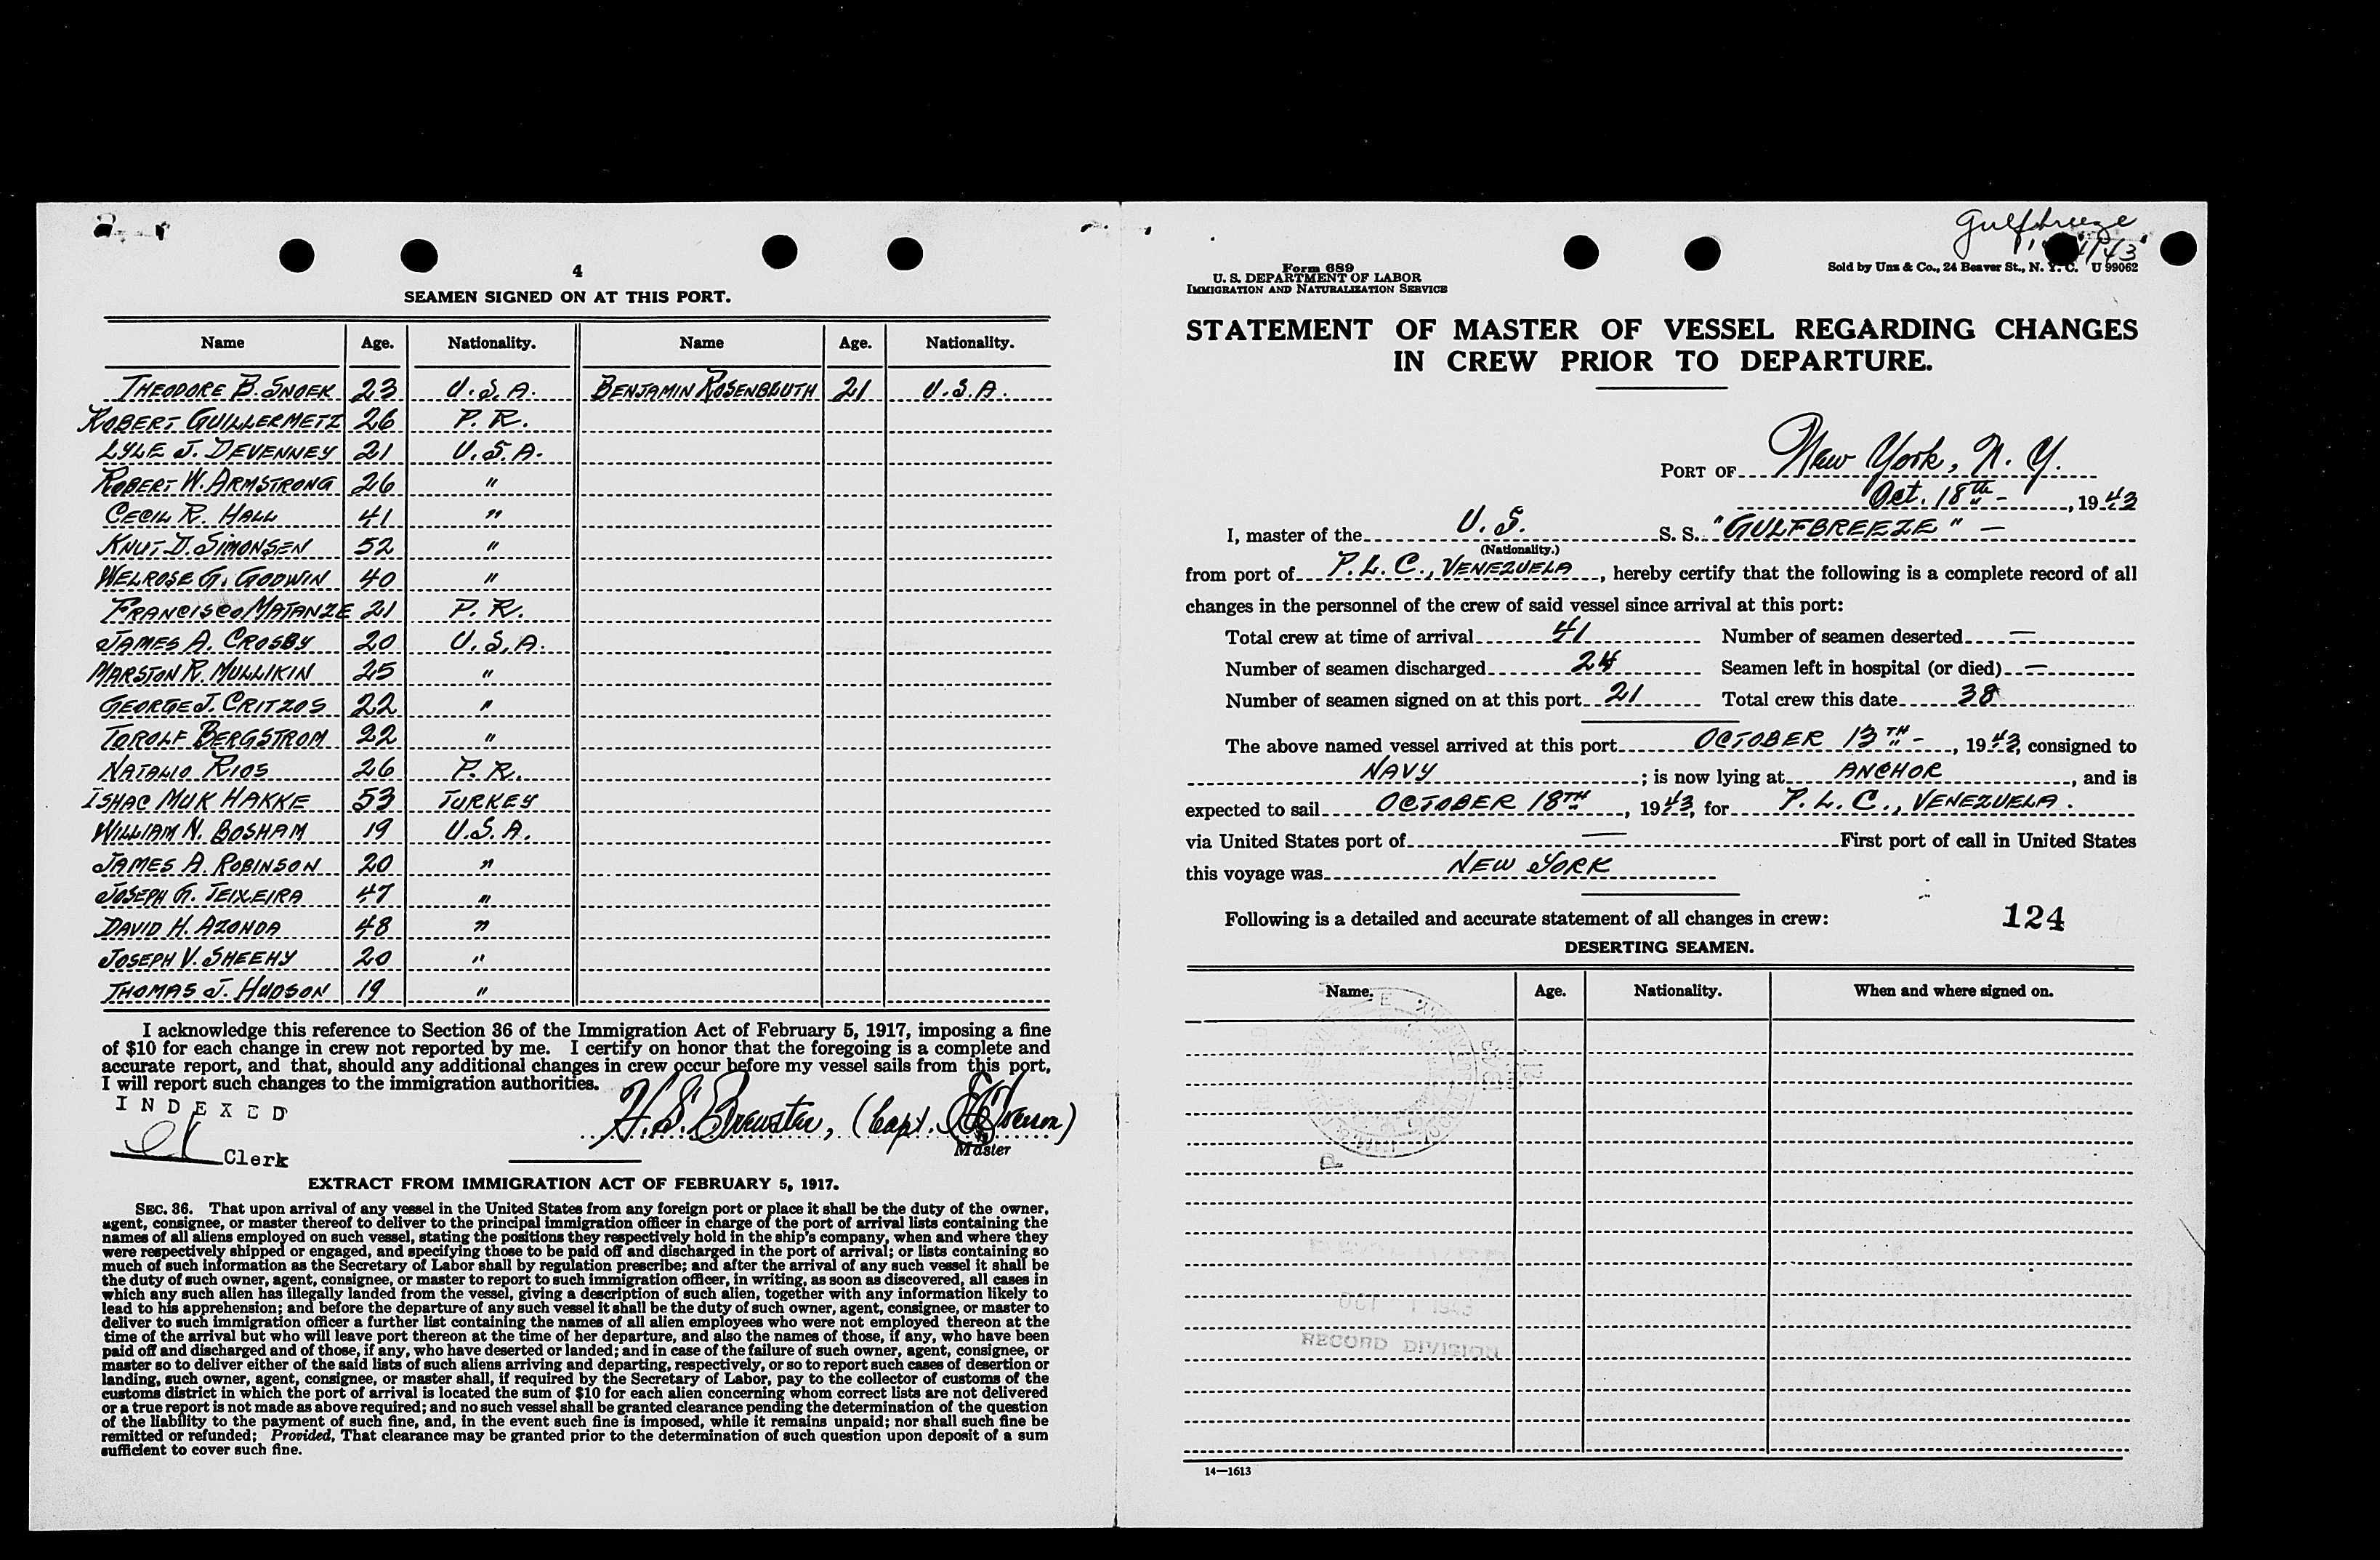 4
SEAMEN SIGNED ON AT THIS PORT.
Name Age. Nationality. Name Age. Nationality.
THEODORE B. SNOEK 23 U.S.A. BENJAMIN ROSENBLUTH 21 U.S.A.
ROBERT GUILLERMETZ 26 P.R.
LYLE J. DEVENNEY 21 U.S.A.
ROBERT W. ARMSTRONG 26 "
CECIL R. HALL 41 "
KNUT D. SIMONSEN 52 "
WELROSE G. GODWIN 40 "
FRANCISCO MATANZE 21 P.R.
JAMES A. CROSBY 20 U.S.A.
MARSTON R. MULLIKIN 25 "
GEORGE J. CRITZOS 22 "
TOROLF BERGSTROM 22 "
NATALIO RIOS 26 P.R.
ISHAC MUK HAKKE 53 TURKEY
WILLIAM N. BOSHAM 19 U.S.A.
JAMES A. ROBINSON 20 "
JOSEPH G. TEIXEIRA 47 "
DAVID H. AZONDA 48 "
JOSEPH V. SHEEHY 20 "
THOMAS J. HUDSON 19 "
I acknowledge this reference to Section 36 of the Immigration Act of February 5, 1917, imposing a fine
of $10 for each change in crew not reported by me. I certify on honor that the foregoing is a complete and
accurate report, and that, should any additional changes in crew occur before my vessel sails from this port,
I will report such changes to the immigration authorities.
INDEXED
H. S. Brewster, (Capt.
Master
Clerk
EXTRACT FROM IMMIGRATION ACT OF FEBRUARY 5, 1917.
SEC. 36. That upon arrival of any vessel in the United States from any foreign port or place it shall be the duty of the owner,
agent, consignee, or master thereof to deliver to the principal immigration officer in charge of the port of arrival lists containing the
names of all aliens employed on such vessel, stating the positions they respectively hold in the ship's company, when and where they
were respectively shipped or engaged, and specifying those to be paid off and discharged in the port of arrival; or lists containing so
much of such information as the Secretary of Labor shall by regulation prescribe; and after the arrival of any such vessel it shall be
the duty of such owner, agent, consignee, or master to report to such immigration officer, in writing, as soon as discovered, all cases in
which any such alien has illegally landed from the vessel, giving a description of such alien, together with any information likely to
lead to his apprehension; and before the departure of any such vessel it shall be the duty of such owner, agent, consignee, or master to
deliver to such immigration officer a further list containing the names of all alien employees who were not employed thereon at the
time of the arrival but who will leave port thereon at the time of her departure, and also the names of those, if any, who have been
paid off and discharged and of those, if any, who have deserted or landed; and in case of the failure of such owner, agent, consignee, or
master so to deliver either of the said lists of such aliens arriving and departing, respectively, or so to report such cases of desertion or
landing, such owner, agent, consignee, or master shall, if required by the Secretary of Labor, pay to the collector of customs of the
customs district in which the port of arrival is located the sum of $10 for each alien concerning whom correct lists are not delivered
or a true report is not made as above required; and no such vessel shall be granted clearance pending the determination of the question
of the liability to the payment of such fine, and, in the event such fine is imposed, while it remains unpaid; nor shall such fine be
remitted or refunded; Provided, That clearance may be granted prior to the determination of such question upon deposit of a sum
sufficient to cover such fine.
Gulfbreeze
Form 689
U. S. DEPARTMENT OF LABOR
IMMIGRATION AND NATURALIZATION SERVICE
Sold by Unz & Co., 24 Beaver St., N. Y. C. U 99062
STATEMENT OF MASTER OF VESSEL REGARDING CHANGES
IN CREW PRIOR TO DEPARTURE.
PORT OF New York, N. Y.
Oct. 18th - , 1943
I, master of the U. S. S. S. "GULFBREEZE" -
(Nationality.)
from port of P. L. C., VENEZUELA, hereby certify that the following is a complete record of all
changes in the personnel of the crew of said vessel since arrival at this port:
Total crew at time of arrival 41 Number of seamen deserted —
Number of seamen discharged 24 Seamen left in hospital (or died) —
Number of seamen signed on at this port 21 Total crew this date 38
The above named vessel arrived at this port OCTOBER 13TH - , 1943, consigned to
NAVY ; is now lying at ANCHOR , and is
expected to sail OCTOBER 18TH , 1943, for P. L. C., VENEZUELA.
via United States port of — First port of call in United States
this voyage was NEW YORK
Following is a detailed and accurate statement of all changes in crew: 124
DESERTING SEAMEN.
Name. Age. Nationality. When and where signed on.
OCT 1943
RECORD DIVISION
14—1613